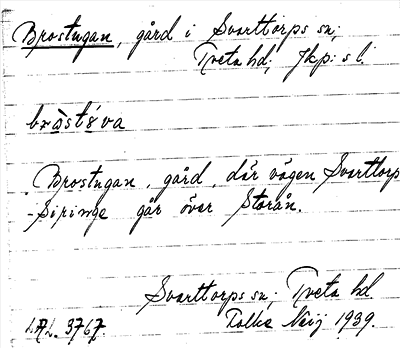 Brostugan, gård i Svarttorps sn;
Tveta hd; Jkp:s l.
bròstúva
Brostugan, gård, där vägen Svarttorp
-Siringe går över Storån.
Svarttorps sn; Tveta hd
LAL. 3767. Folke Neij 1939.